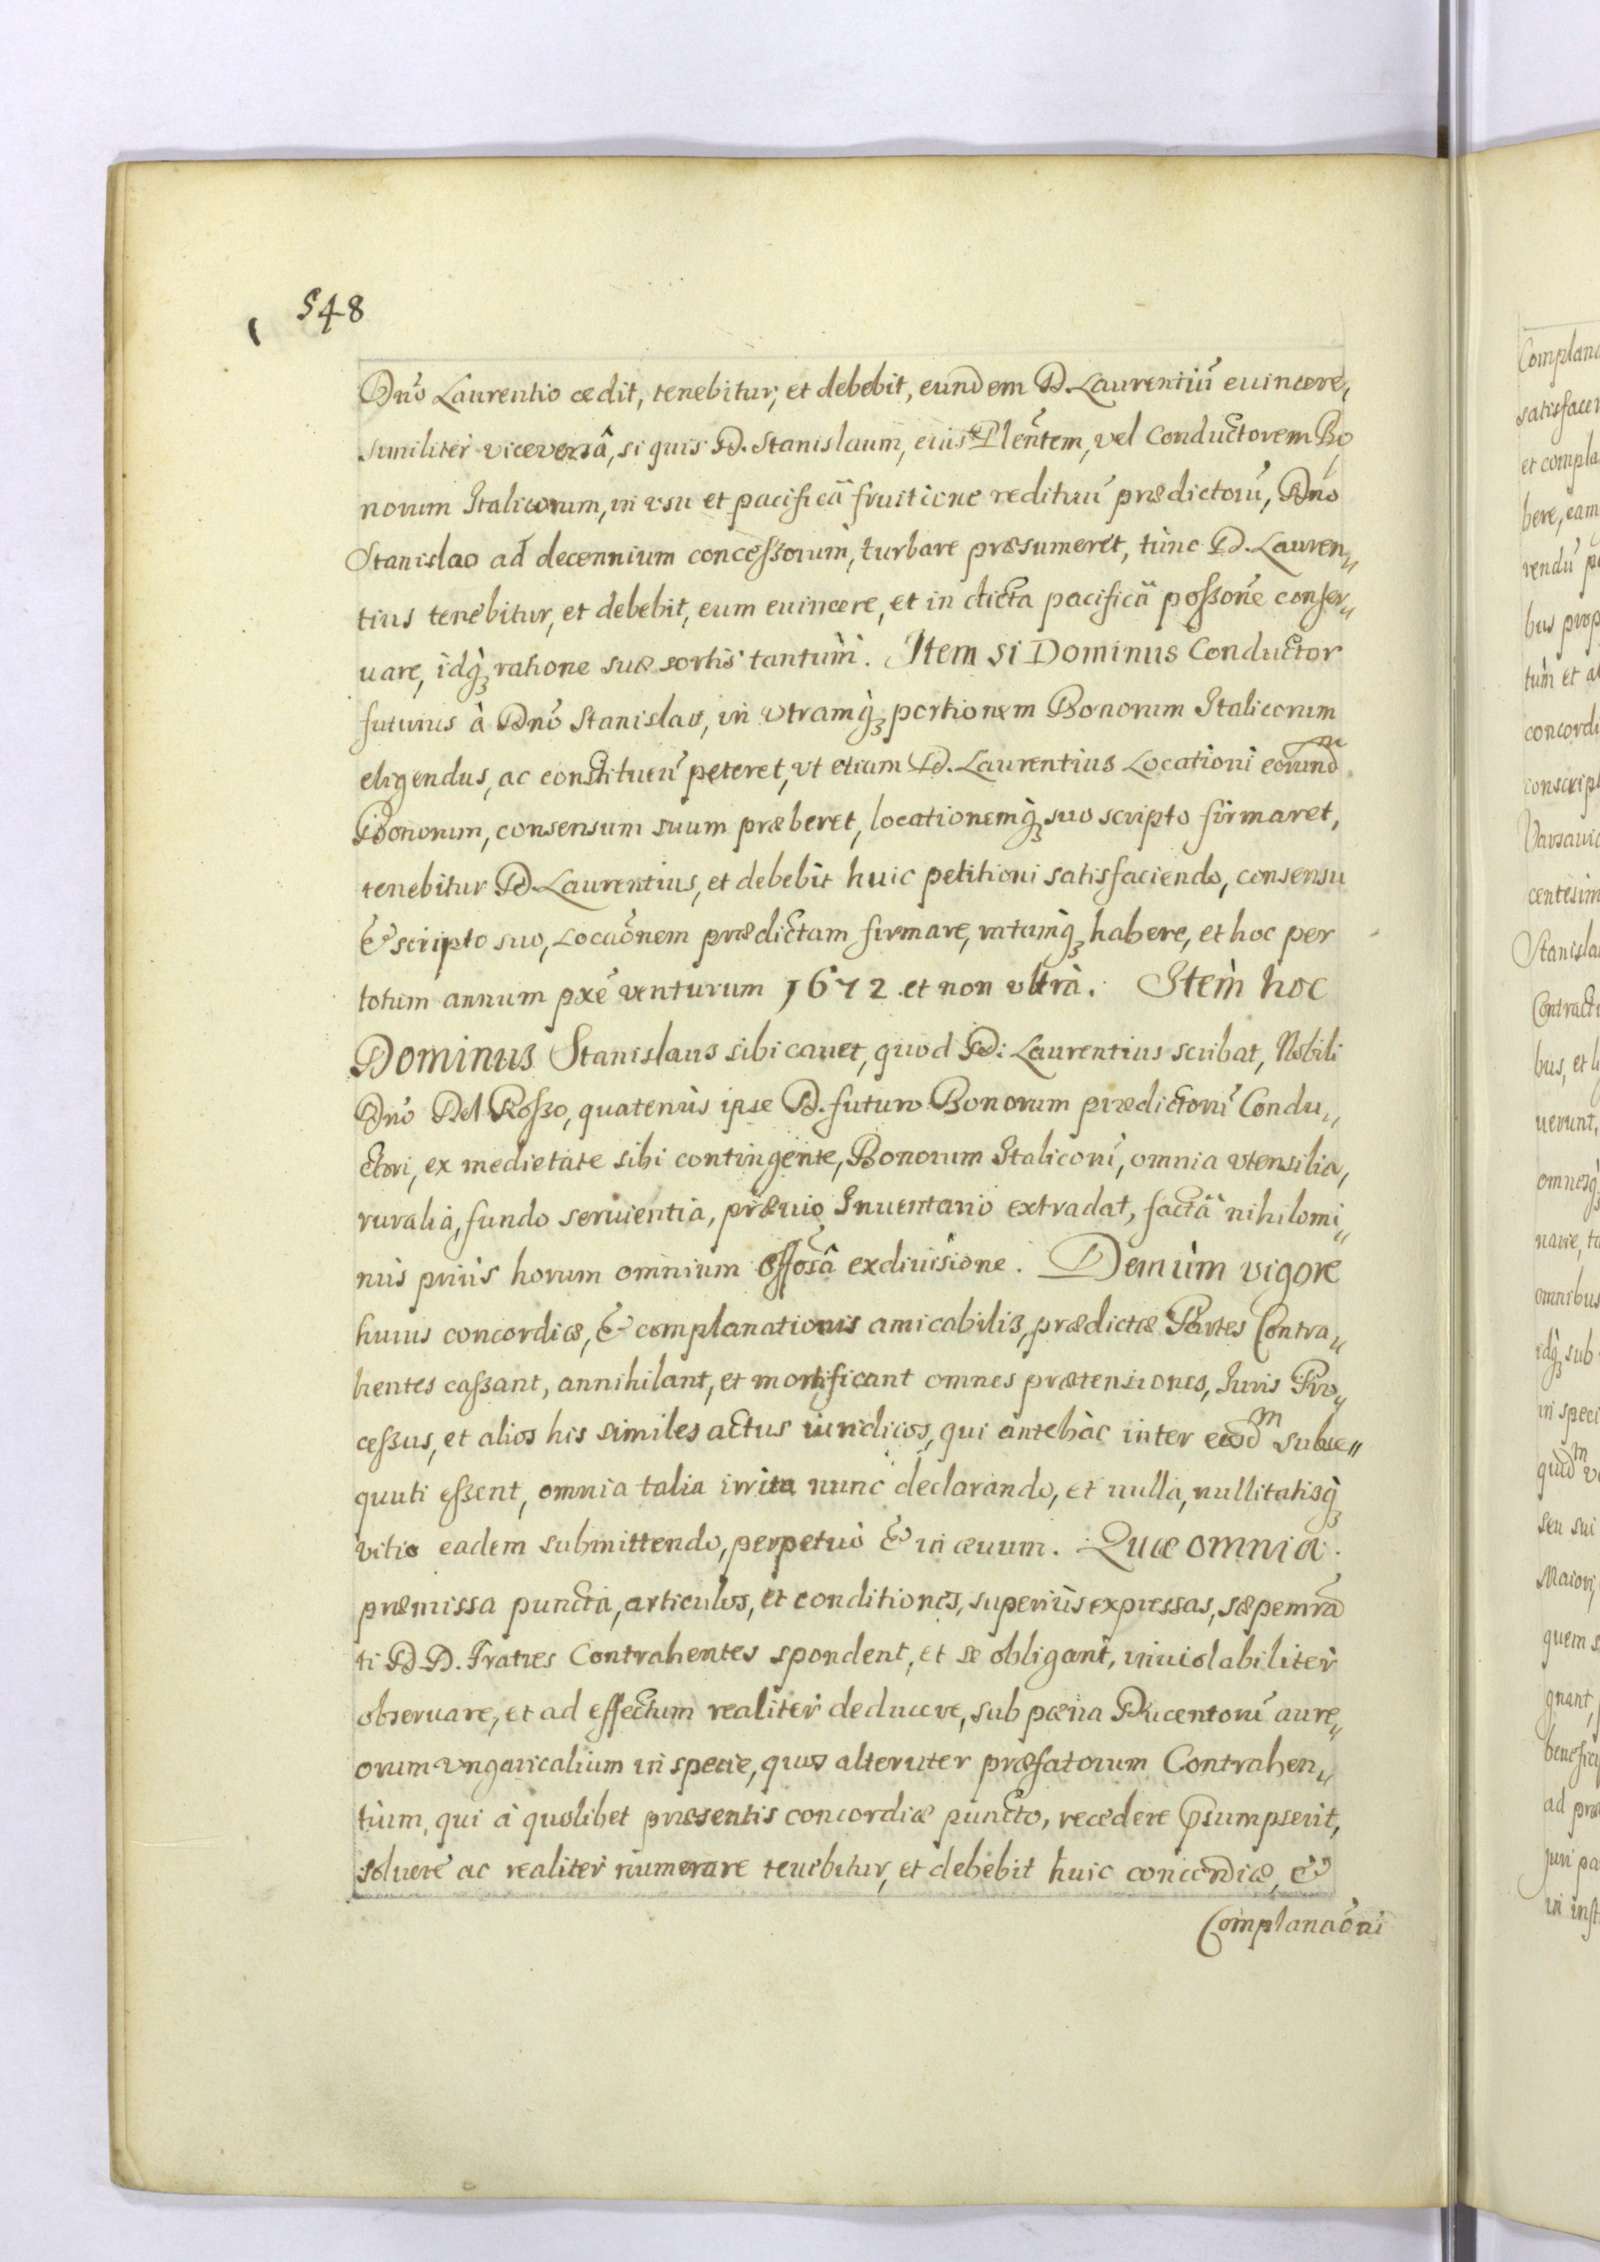 548
Dnō Laurentio cedit, tenebitur, et debebit, eundem D. Laurentiū euincere,
similitèr viceversâ, si quis D. Stanislaum, eius Plēntem, vel Conductorem Bo„
norum Italicorum, in vsu et pacificâ fruitione redituū prædictorū, Dnō
Stanislao ad decennium concessorum, turbare præsumeret, tùnc D. Lauren„
tius tenebitur, et debebit, eum euincere, et in dicta pacificâ possōne conser„
uare, idq; ratione suæ sortis tantùm. Item si Dominus Conductor
futurus à Dnō Stanislao, in vtramq; portionem Bonorum Italicorum
eligendus, ac constituen̄ peteret, vt etiam D. Laurentius Locationi eorundm
Bonorum, consensum suum præberet, locationemq; suo scripto firmaret,
tenebitur D. Laurentius, et debebit huic petitioni satisfaciendo, consensu
& scripto suo, Locaōnem prædictam firmare, ratamq; habere, et hoc per
totum annum pxē venturum 1672 et non vltrà. Itèm hoc
Dominus Stanislaus sibi cauet, quod D: Laurentius scribat, Nobili
Dnō Del Rosso, quatenùs ipse D. futuro Bonorum prædictorū Condu„
ctori, ex medietate sibi contingente, Bonorum Italicorū, omnia vtensilia,
ruralia, fundo seruientia, præuio Inuentario extradat, factâ nihilomi„
nùs priùs horum omnium offōsâ exdiuisione. Demùm vigore
huius concordiæ, & complanationis amicabilis, prædictæ Partes Contra„
hentes cassant, annihilant, et mortificant omnes prætensiones, Iuris Pro„
cessus, et alios his similes actus iuridicos, qui antehàc inter eosdm subse„
quuti essent, omnia talia irrita nunc declarando, et nulla, nullitatisq;
vitio eadem submittendo, perpetuò & in æuum. Quæ omnia
præmissa puncta, articulos, et conditiones, superiùs expressas, sæpemrā
ti D.D. Fratres Contrahentes spondent, et se obligant, inuiolabilitèr
obseruare, et ad effectum realitèr deducere, sub pæna Ducentorū aure„
orum Vngaricalium in specie, quos alteruter præfatorum Contrahen„
tium, qui à quolibet præsentis concordiæ puncto, recedere p̄sumpserit,
soluere ac realitèr numerare tenebitur, et debebit huic concordiæ, &
Complanaōni